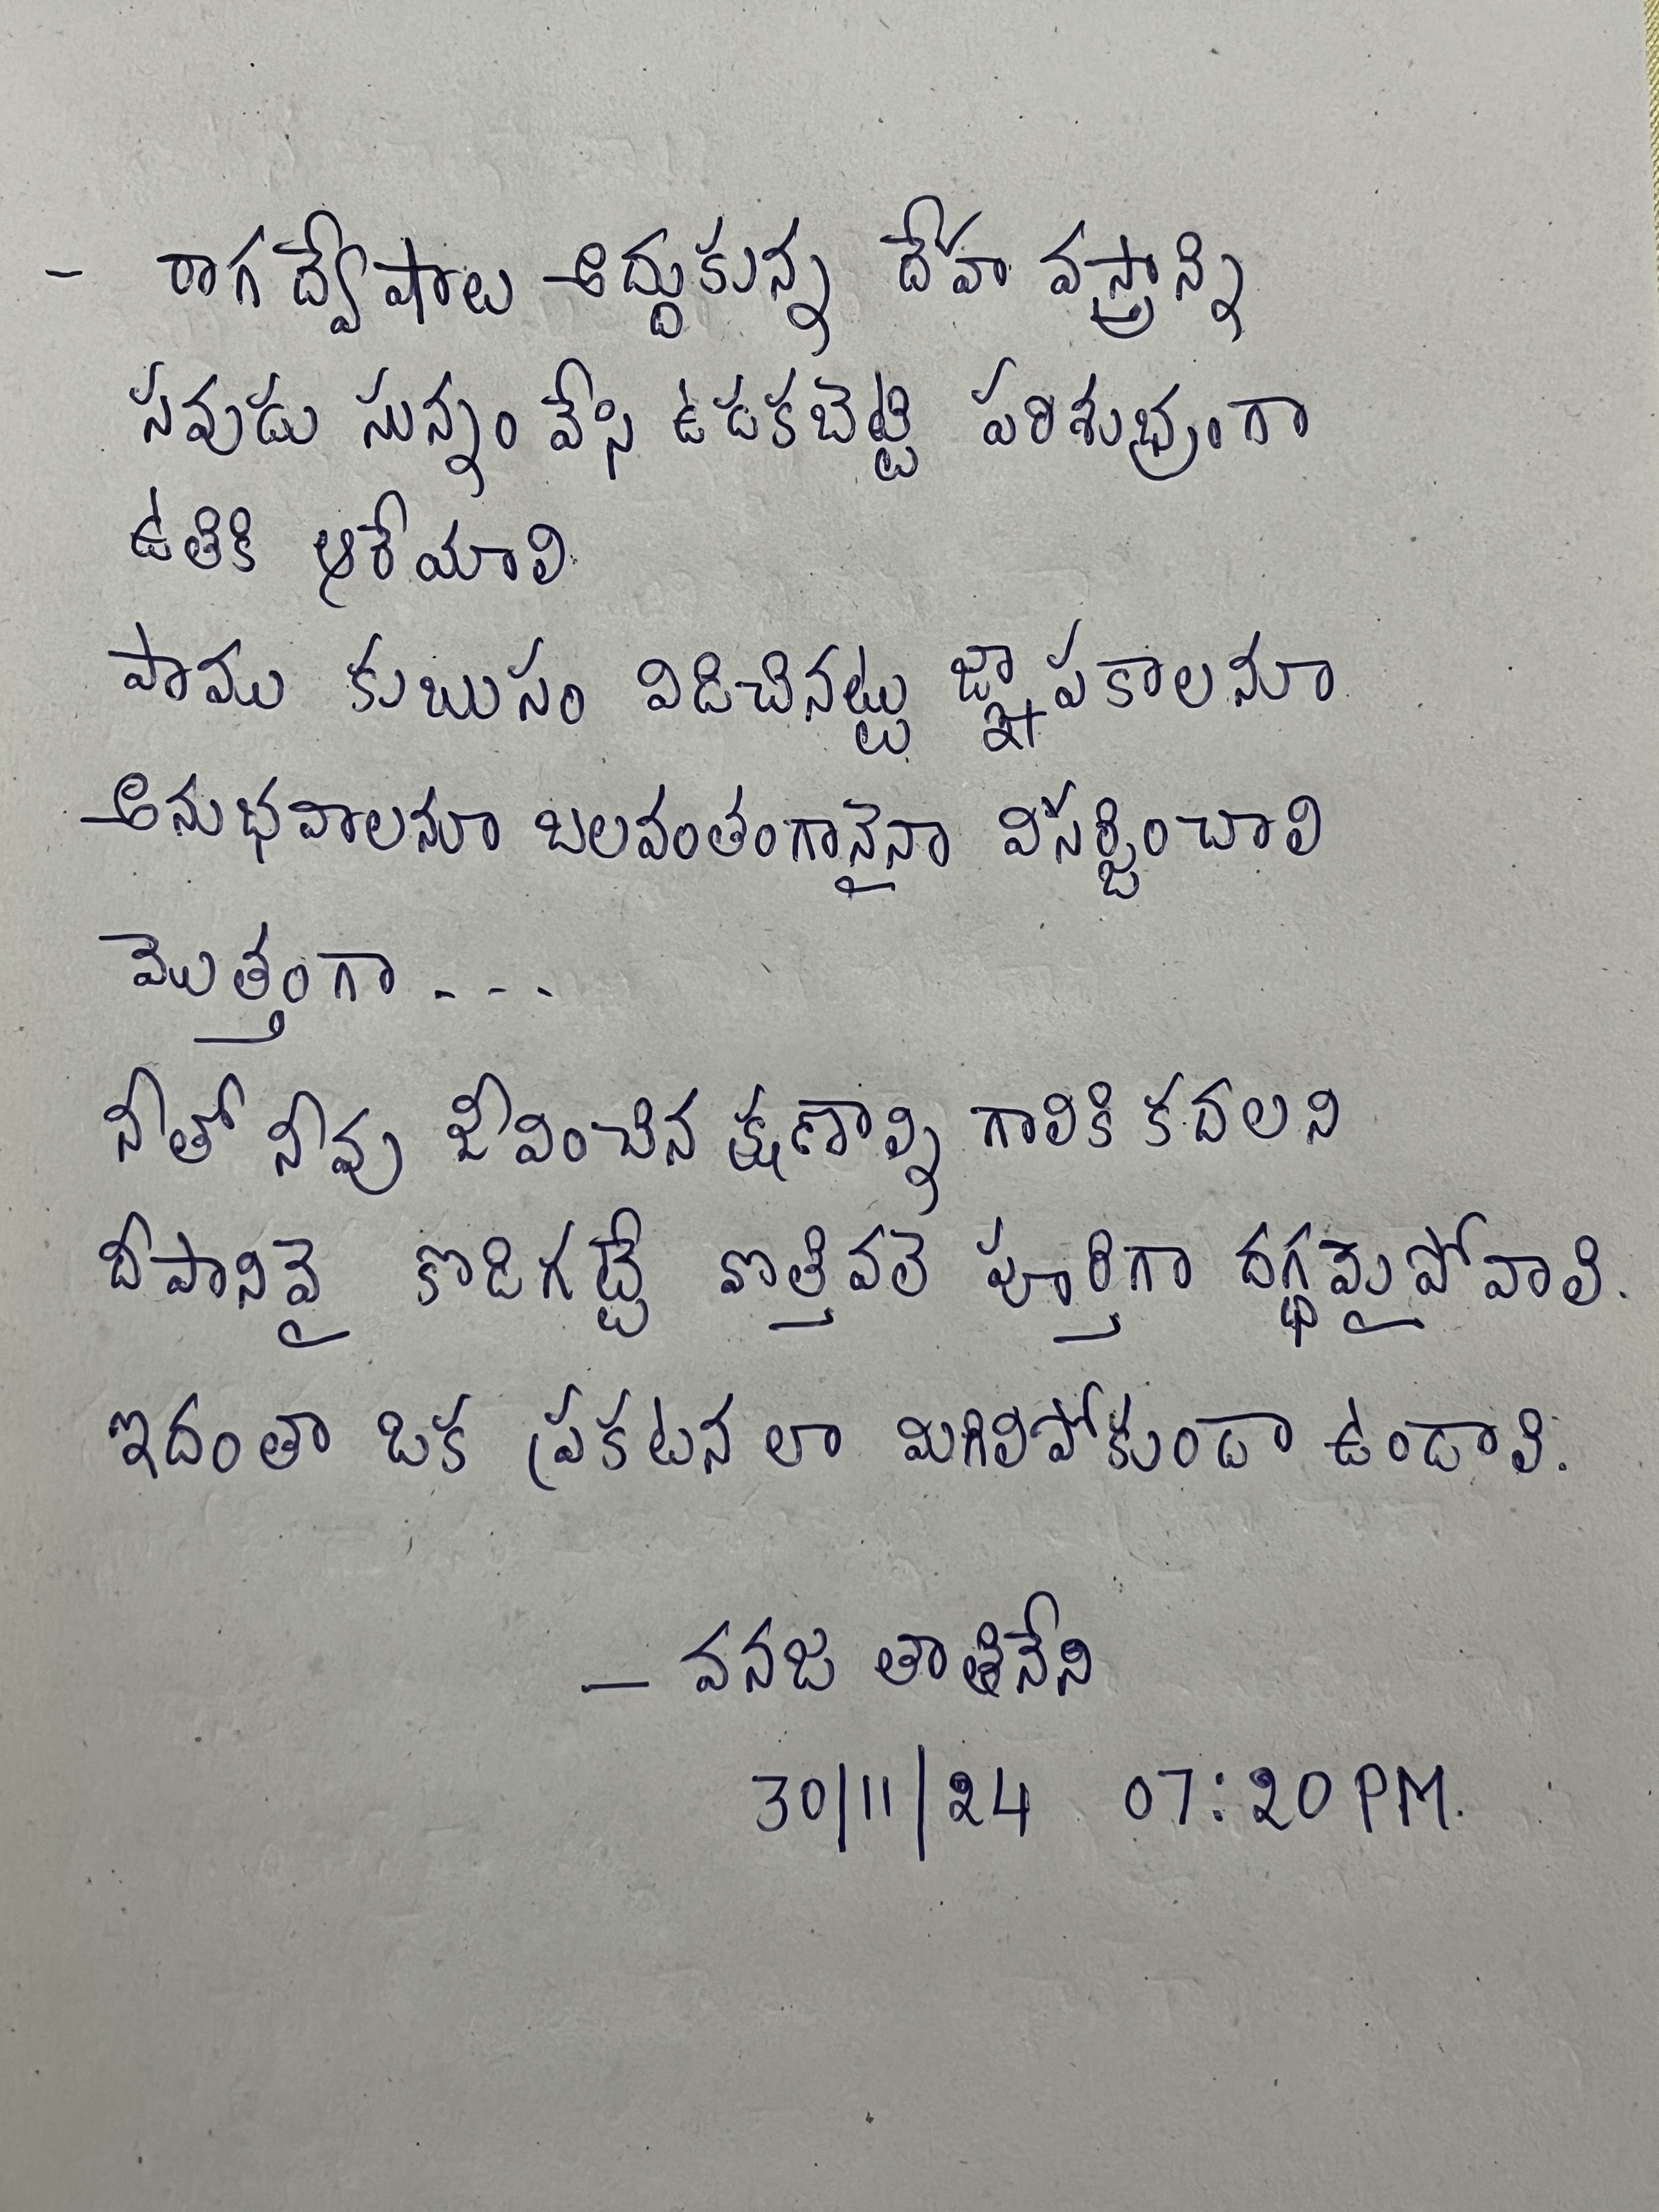 - రాగద్వేషాలు అద్దుకున్న దేహ వస్త్రాన్ని
సవుడు సున్నం వేసి ఉడకబెట్టి పరిశుభ్రంగా
ఉతికి ఆరేయాలి
పాము కుబుసం విడిచినట్టు జ్ఞాపకాలనూ
అనుభవాలనూ బలవంతంగానైనా విసర్జించాలి
మొత్తంగా....
నీతో నీవు జీవించిన క్షణాన్ని గాలికి కదలని
దీపానివై కొడిగట్టే వొత్తివలె పూర్తిగా దగ్ధమైపోవాలి.
ఇదంతా ఒక ప్రకటనలా మిగిలిపోకుండా ఉండాలి.
– వనజ తాతినేని
30/11/24 07:20PM.